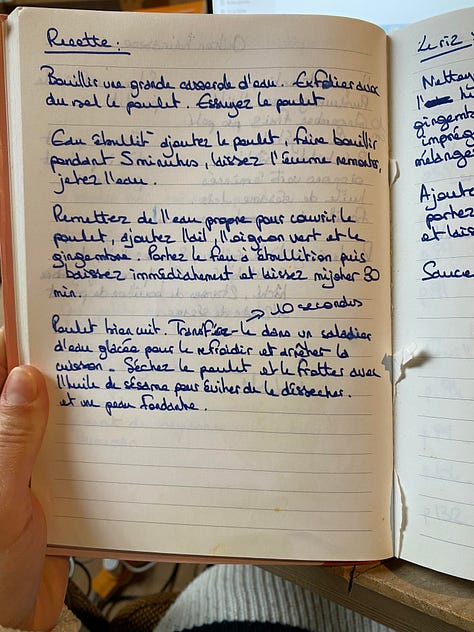 Recette :
Bouillir une grande casserole d'eau. Exfolier avec
du sel le poulet. Essuyez le poulet
Eau ébouillit ajoutez le poulet, faire bouillir
pendant 5 minutes, laissez l'écume remonter,
jetez l'eau.
Remettez de l'eau propre pour couvrir le
poulet, ajoutez l'ail, l'oignon vert et le
gingembre. Portez le feu à ébullition puis
baissez immédiatement et laissez mijoter 30
min.
→ 30 secondes
Poulet bien cuit. Transférez-le dans un saladier
d'eau glacée pour le refroidir et arrêter la
cuisson. Séchez le poulet et le frotter avec
l'huile de sésame pour éviter de le dessécher.
et une peau fondante.
Le riz
Nettoy
l'
gingemb
imprégn
mélange
Ajoute
portez
et lais
Sauce